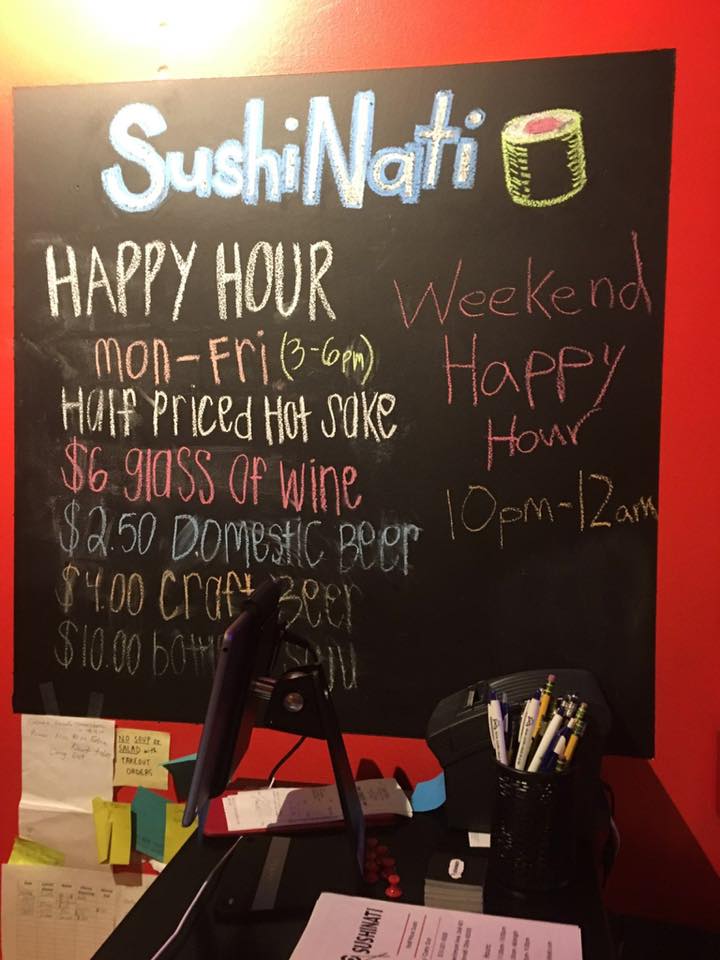 SushiNati
HAPPY HOUR
Mon-Fri (3-6pm)
Half Priced Hot Sake
$6 glass of wine
$2.50 Domestic Beer
$4.00 Craft Beer
$10.00
Weekend
Happy
Hour
10pm-12am
NO SOUP or
SALAD with
TAKEOUT
ORDERS
SUSHINATI